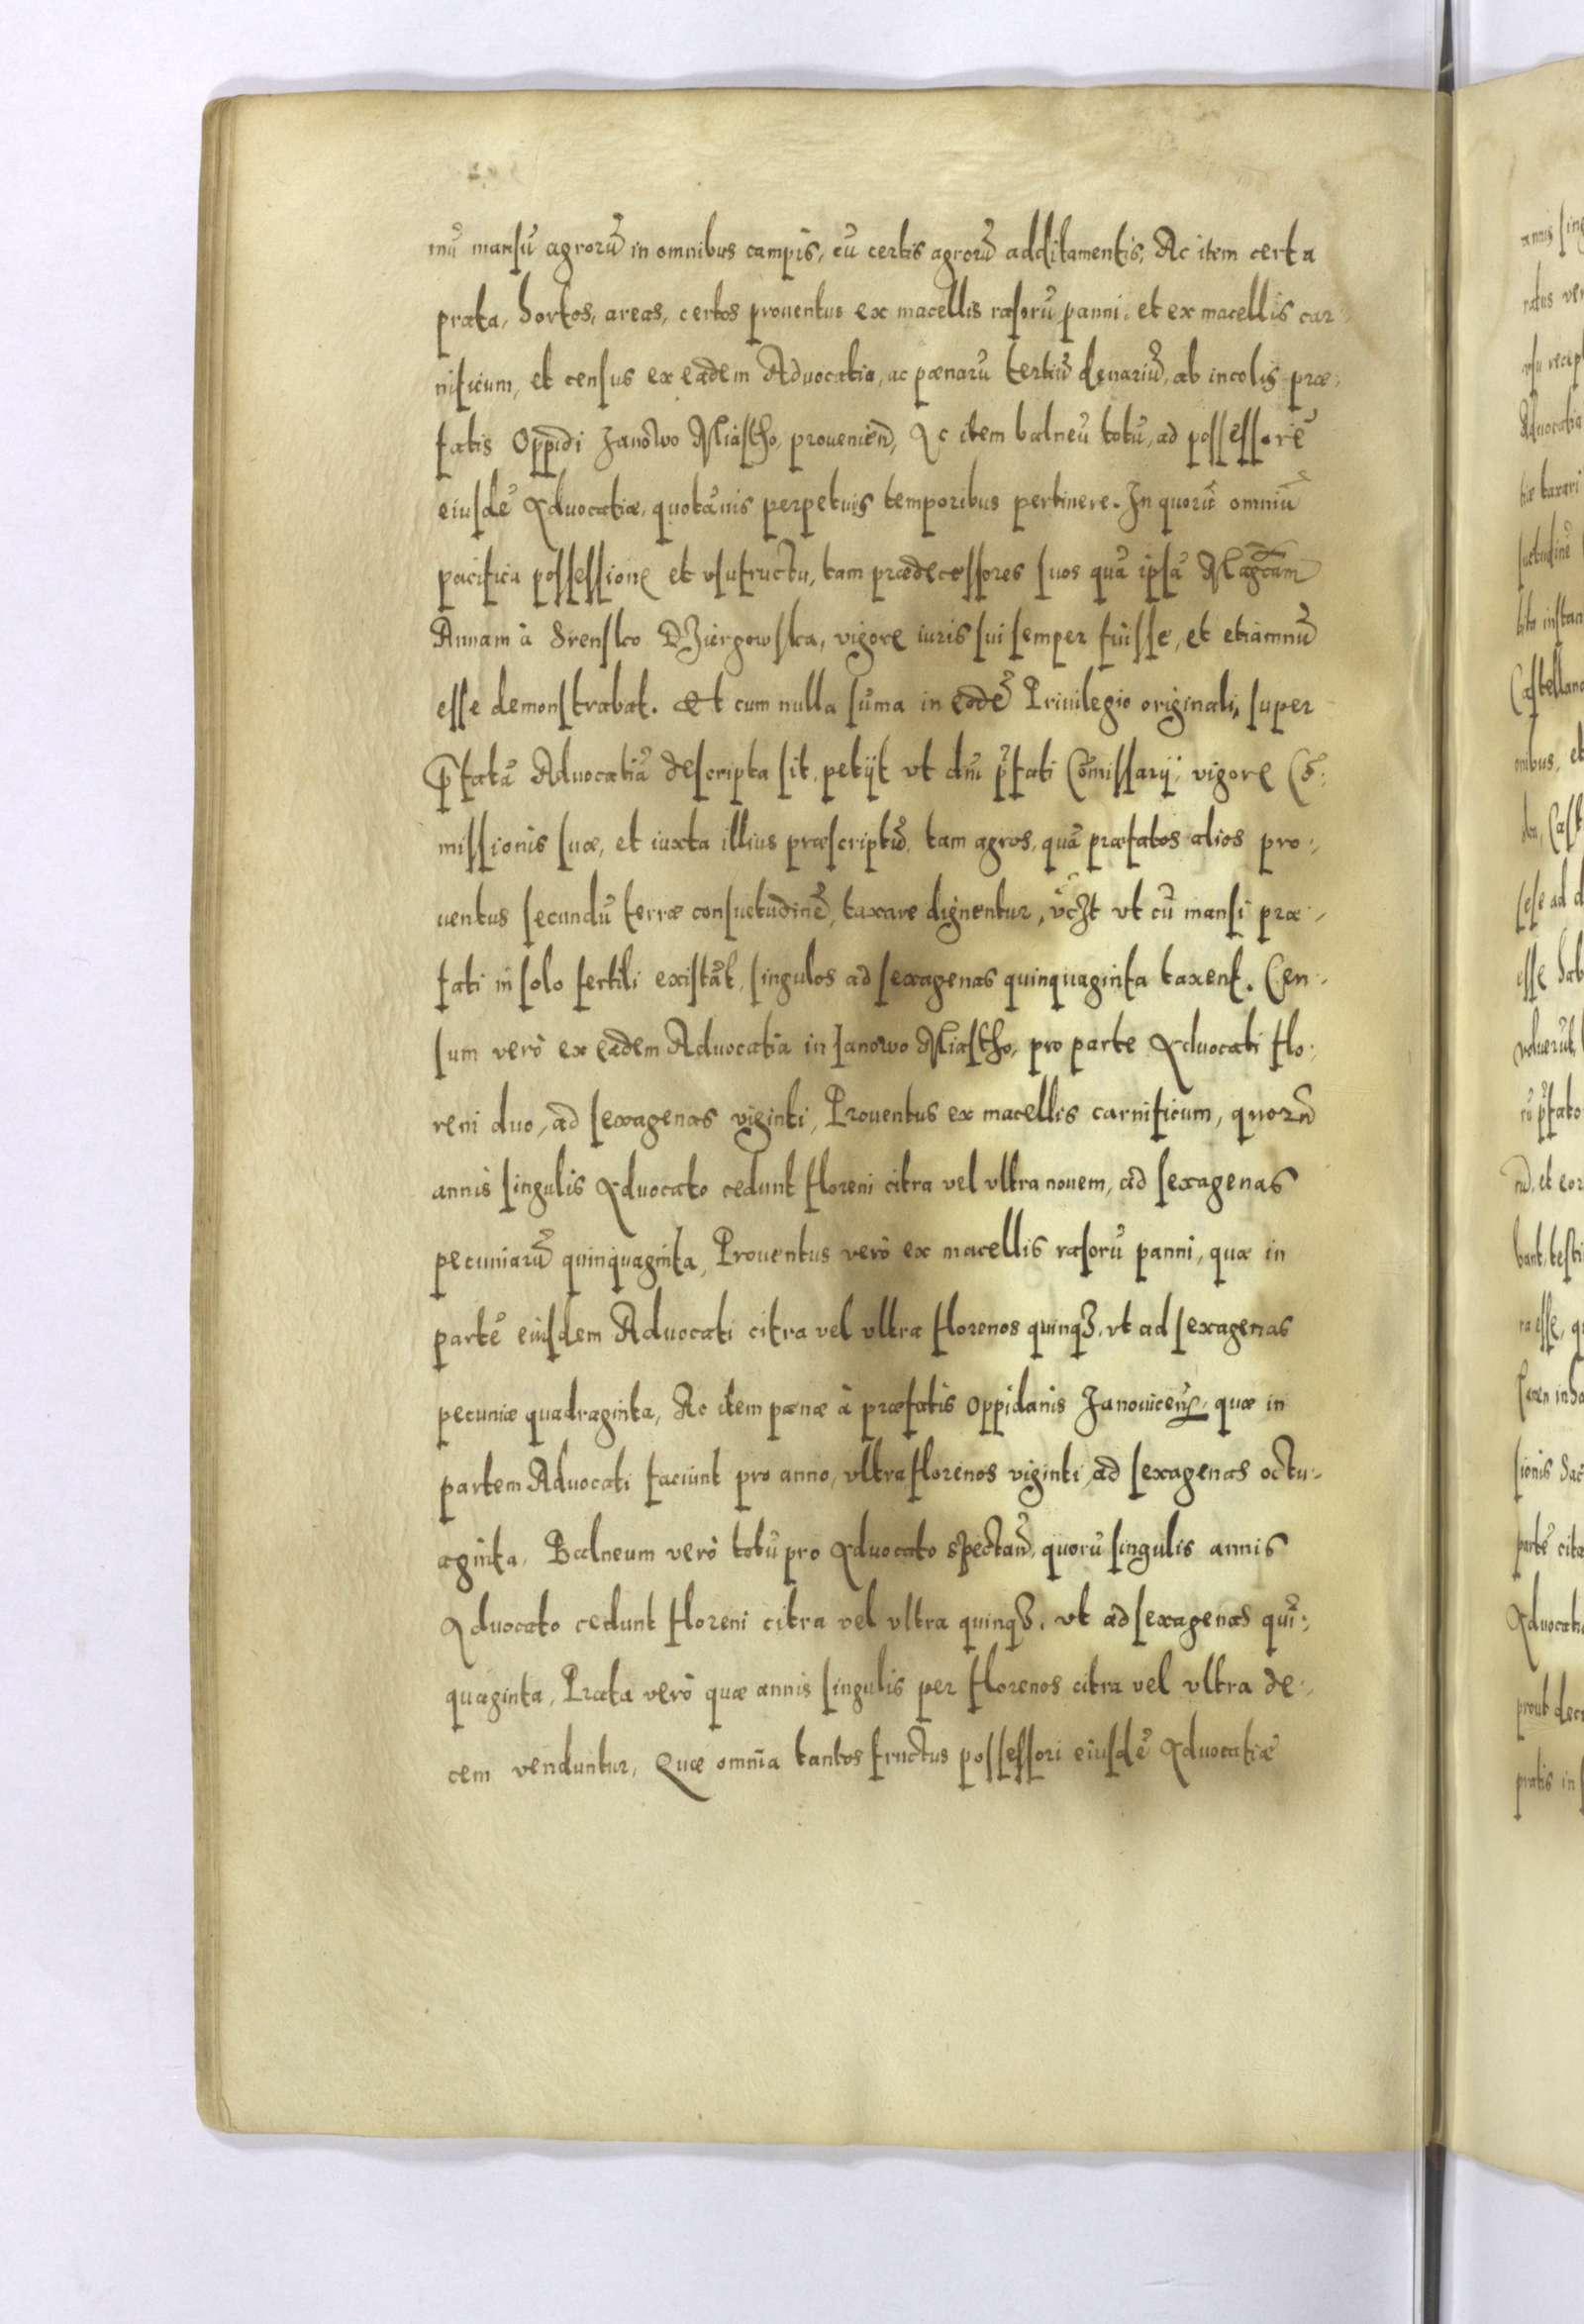 mū mansū agrorū in omnibus campis, cū certis agrorū additamentis, Ac item certa
prata, hortos, areas, certos prouentus ex macellis rasorū panni, et ex macellis car
nificum, et census ex eadem Aduocatia, ac pænarū tertiū denariū, ab incolis præ:
fatis Oppidi Janowo Miastho, prouenien̄, Ac item balneū totū, ad possessorē
eiusdē Aduocatiæ, quotānis perpetuis temporibus pertinere. In quorū omniū
pacifica possessione et vsufructu, tam prædecessores suos quā ipsā Magcam
Annam à Srensko Dzierzgowska, vigore iuris sui semper fuisse, et etiamnū
esse demonstrabat. Et cum nulla sūma in eodē Priuilegio originali, super
P̄fatā Aduocatiā descripta sit, petijt vt dn̄i p̄fati Cōmissarij, vigore Cō:
missionis suæ, et iuxta illius præscriptū, tam agros, quā præfatos alios pro:
uentus secundū terræ consuetudinē, taxare dignentur, vczt vt cū mansi præ:
fati in solo fertili existāt, singulos ad sexagenas quinquaginta taxent. Cen:
sum verò ex eadem Aduocatia in Janowo Miastho, pro parte Aduocati flo:
reni duo, ad sexagenas viginti, Prouentus ex macellis carnificum, quorū
annis singulis Aduocato cedunt floreni citra vel vltra nouem, ad sexagenas
pecuniarū quinquaginta, Prouentus verò ex macellis rasorū panni, quæ in
partē eiusdem Aduocati citra vel vltra florenos quinqȝ, vt ad sexagenas
pecuniæ quadraginta, Ac item pænæ à præfatis Oppidanis Janouicen̄, quæ in
partem Aduocati faciunt pro anno, vltra florenos viginti, ad sexagenas octu:
aginta, Balneum verò totū pro Aduocato spectan̄, quorū singulis annis
Aduocato cedunt floreni citra vel vltra quinqȝ, vt ad sexagenas quī:
quaginta, Prata verò quæ annis singulis per florenos citra vel vltra de:
cem venduntur, Quæ omnia tantos fructus possessori eiusdē Aduocatiæ